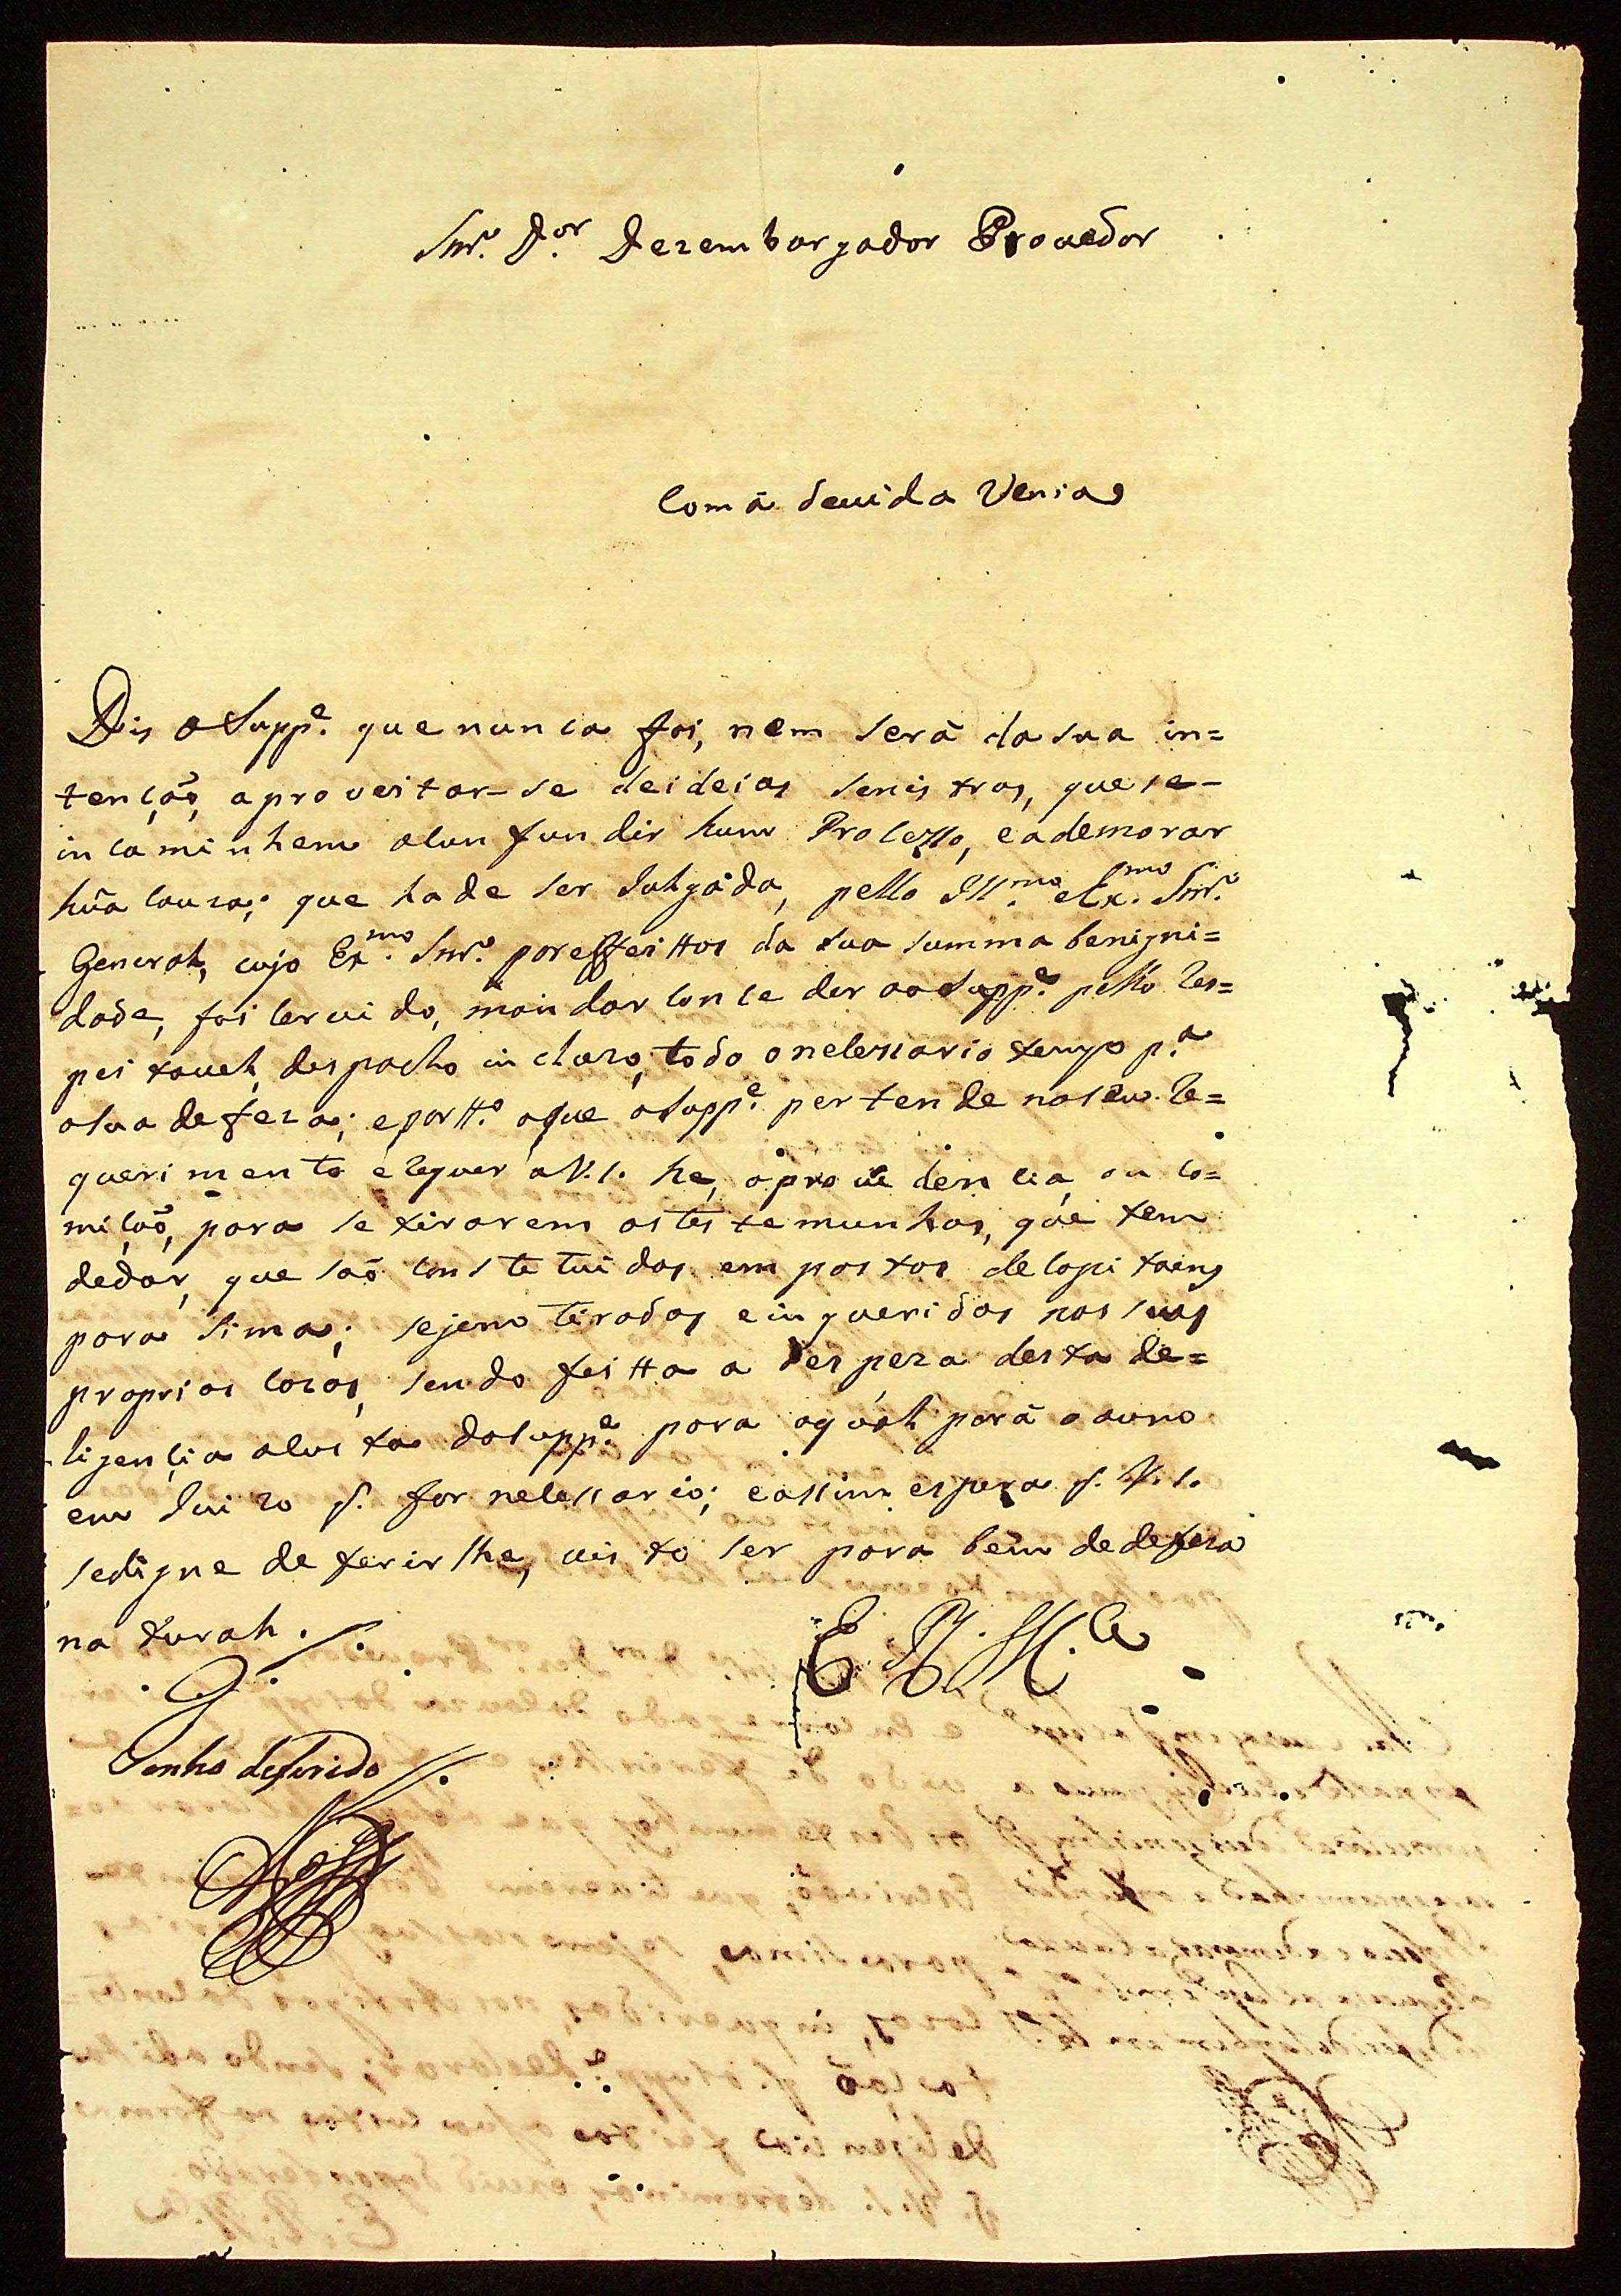 Snr. D.or Dezembargador Prouedor
Com a deuida Venia
Dis o Supp.e que nunca foi, nem será da sua in=
tençaõ, aproveitar-se de ideias senistras, que se-
incaminhem a confundir hum Procêsso, e a demorar
hũa cauza; que hade ser Julgáda, pello Ill.mo e Ex.mo Snr.
General, cujo Ex.mo Snr. por effeittos da sua summa benigni=
dade, foi servido, mandar conceder ao Supp.e pello Res=
peitauel despacho incluzo, todo o necessario tempo p.a
a sua defeza; e portt.o o que o Supp.e pertende no seu Re=
querimento e Requer a V.S. he, a prouidencia, ou Co=
miçaõ, para se tirarem as testemunhas, que tem
dedar, que saõ constetuidas em postos de Capitaens
para Sima; sejem tiradas e inqueridas nas suas
proprias Cazas, sendo feitta a despeza desta de=
ligencia a custa do Supp.e para a qual pará o ouro
em Juizo s. for necessario; e assim espera q. V.S.
se digne deferir lhe, uisto ser para bem de defeza
natural.
E R. M.ce
Tenho deferido